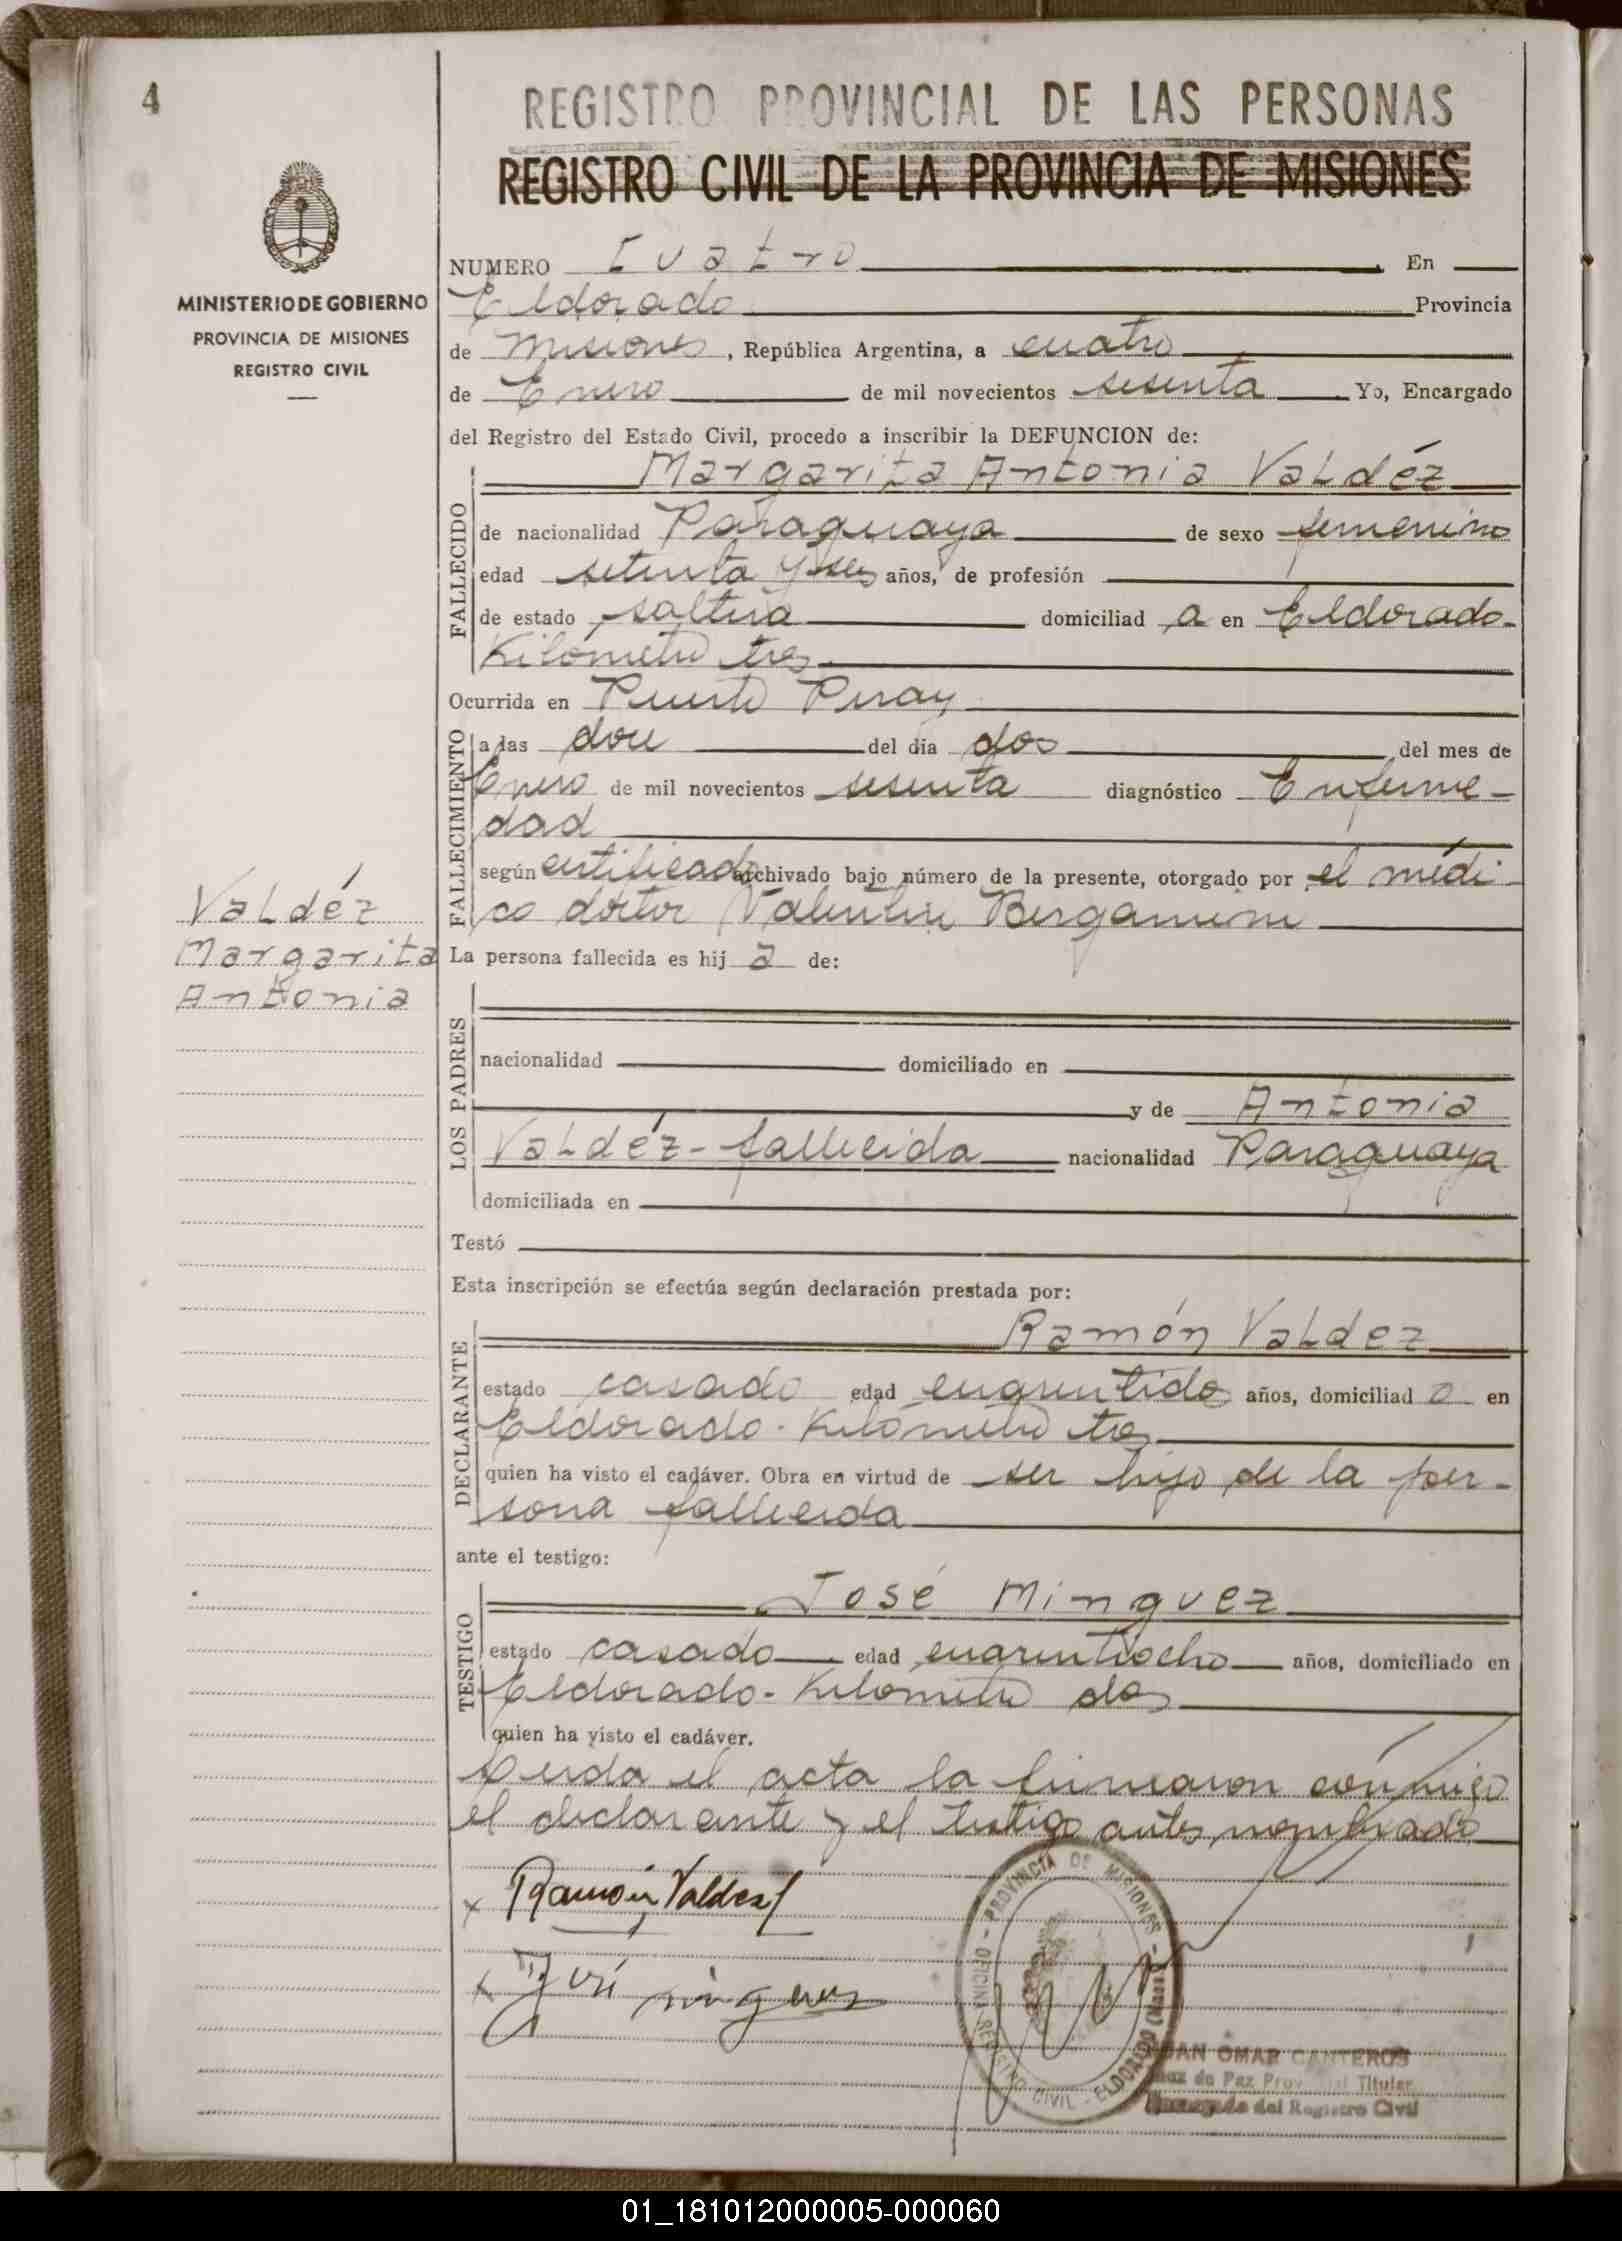 4
REGISTRO PROVINCIAL DE LAS PERSONAS
REGISTRO CIVIL DE LA PROVINCIA DE MISIONES
MINISTERIO DE GOBIERNO
PROVINCIA DE MISIONES
REGISTRO CIVIL
NUMERO Cuatro En
Eldorado Provincia
de Misiones, República Argentina, a cuatro
de Enero de mil novecientos sesenta Yo, Encargado
del Registro del Estado Civil, procedo a inscribir la DEFUNCION de:
Margarita Antonia Valdéz
FALLECIDO
de nacionalidad Paraguaya de sexo femenino
edad setenta y seis años, de profesión
de estado soltera domiciliad a en Eldorado-
Kilómetro tres
Ocurrida en Puerto Piray
FALLECIMIENTO
a las doce del día dos del mes de
Enero de mil novecientos sesenta diagnóstico Enferme-
dad
según certificado archivado bajo número de la presente, otorgado por el médi-
co doctor Valentin Bergamini
Valdéz
Margarita
Antonia
La persona fallecida es hij a de:
LOS PADRES
nacionalidad domiciliado en
y de Antonia
Valdéz- fallecida nacionalidad Paraguaya
domiciliada en
Testó
Esta inscripción se efectúa según declaración prestada por:
Ramón Valdez
DECLARANTE
estado casado edad cuarentidos años, domiciliad o en
Eldorado- Kilómetro tres
quien ha visto el cadáver. Obra en virtud de ser hijo de la per-
sona fallecida
ante el testigo:
José Minguez
TESTIGO
estado casado edad cuarentiocho años, domiciliado en
Eldorado- Kilometro dos
quien ha visto el cadáver.
Leida el acta la firmaron conmigo
el declarante y el testigo antes nombrado
x Ramón Valdez
x José Minguez
PROVINCIA DE MISIONES - OFICINA REGISTRO CIVIL - ELDORADO (Mnes.)
JUAN OMAR CANTEROS
Juez de Paz Provincial Titular
Encargado del Registro Civil
01_181012000005-000060